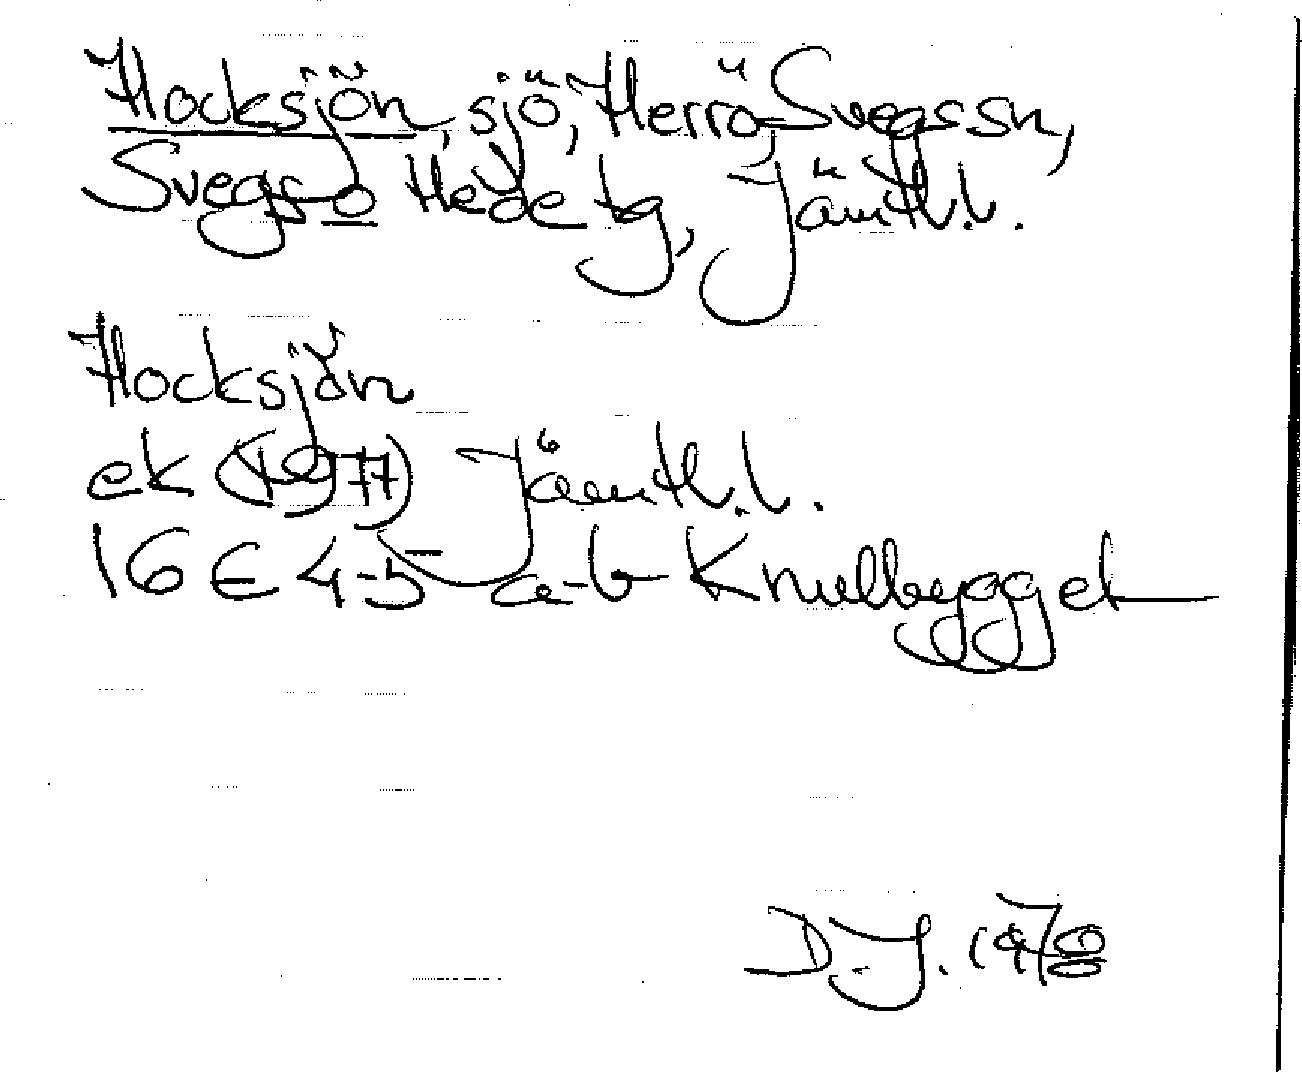 Hocksjön, sjö, Herrö Svegs sn,
Svegs o Hede tg, Jämtl. l.
Hocksjön
ek (1977) Jämtl. l.
16 E 4-5 a-b Knullbygget
D. J. 1978